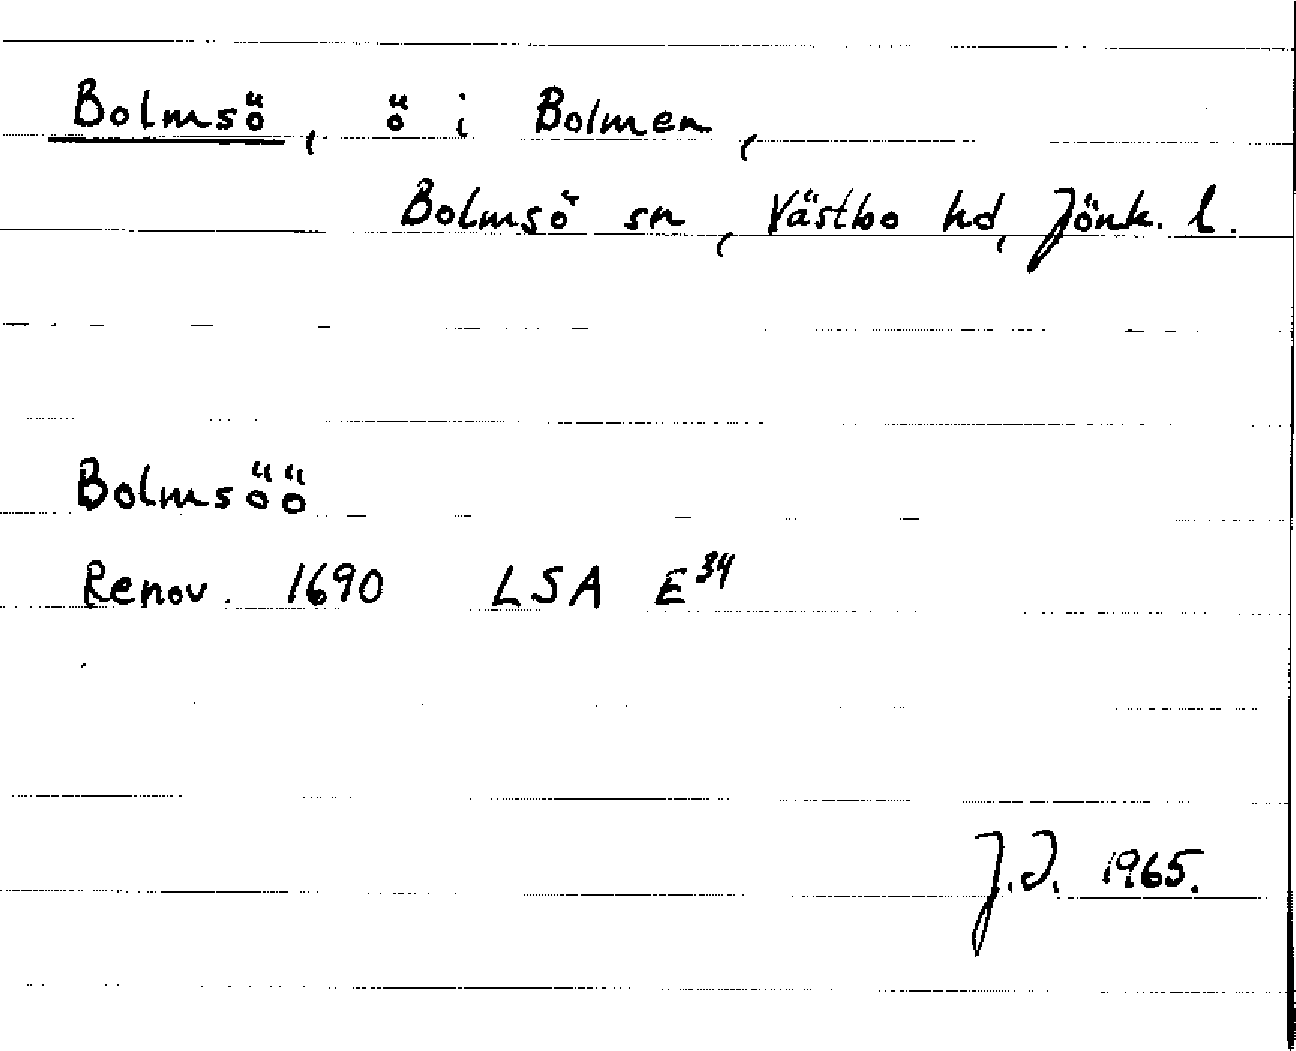 Bolmsö, ö i Bolmen,
Bolmsö sn, Västbo hd, Jönk. l.
Bolmsöö
Renov. 1690 LSA E³⁴
J.I. 1965.